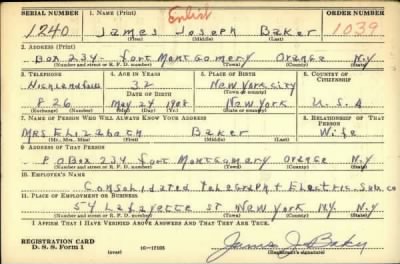 SERIAL NUMBER 1. NAME (Print) Enlist ORDER NUMBER
1240 James Joseph Baker 1039
(First) (Middle) (Last)
2. ADDRESS (Print)
Box 234- Fort Montgomery Orange N.Y
(Number and street or R. F. D. number) (Town) (County) (State)
3. TELEPHONE 4. AGE IN YEARS 5. PLACE OF BIRTH 6. COUNTRY OF CITIZENSHIP
Highland Falls 32 New York City
DATE OF BIRTH (Town or county)
826 May 24 1908 New York U.S.A
(Mo.) (Day) (Yr.) (State or country)
7. NAME OF PERSON WHO WILL ALWAYS KNOW YOUR ADDRESS 8. RELATIONSHIP OF THAT PERSON
Mrs Elizabeth Baker Wife
(Mr., Mrs., Miss) (First) (Middle) (Last)
9. ADDRESS OF THAT PERSON
P O Box 234 Fort Montgomery Orange N.Y
(Number and street or R. F. D. number) (Town) (County) (State)
10. EMPLOYER'S NAME
Consolidated Telegraph & Electric. Sub. co
11. PLACE OF EMPLOYMENT OR BUSINESS
54 Lafayette st New York NY. N.Y
(Number and street or R. F. D. number) (Town) (County) (State)
I AFFIRM THAT I HAVE VERIFIED ABOVE ANSWERS AND THAT THEY ARE TRUE.
REGISTRATION CARD
D. S. S. Form 1 (over) 16—17105 James J Baker
(Registrant's signature)